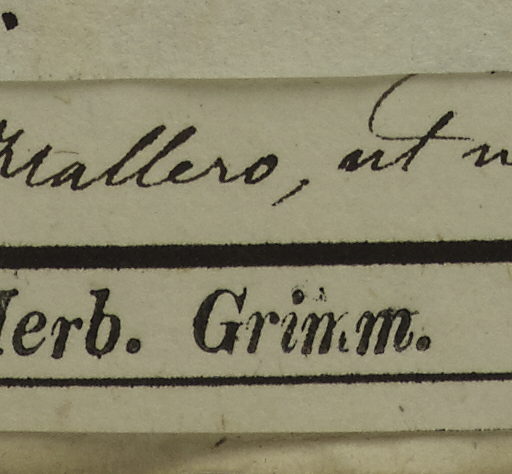 Hallero, ut
Herb. Grimm.